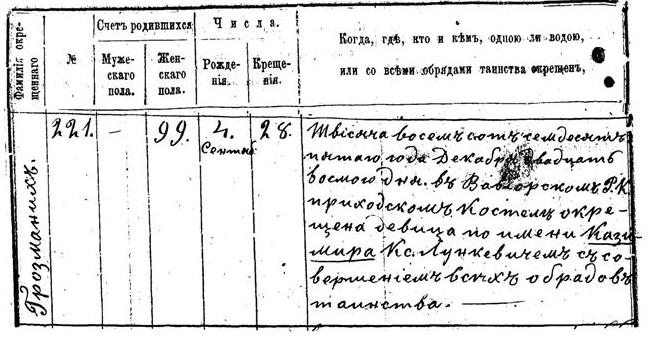 Фамилія окре-
щеннаго
№
Счетъ родившихся
Муже-
скаго
пола.
Жен-
скаго
пола.
Числа.
Рожде-
нія.
Креще-
нія.
Когда, гдѣ, кто и кѣмъ, одною ли водою,
или со всѣми обрядами таинства окрещенъ,
Грозманихъ.
221.
—
99.
4.
Сентяб
28.
Тысяча восемъ сотъ семдесятъ
пятаго года Декабря двадцать
восмого дня. въ Р. К.
приходскомъ Костелѣ окре-
щена девица по имени Кази
мира Кс. Лункевичемъ съ со-
вершеніемъ всѣхъ обрадовъ
таинства. —